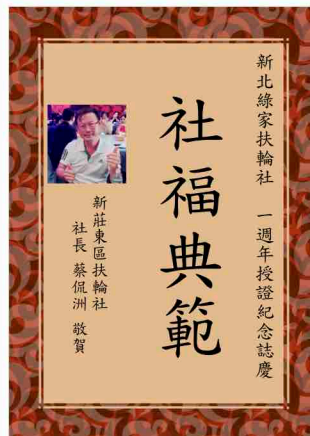 新北綠家扶輪社　一週年授證紀念誌慶
社福典範
新莊東區扶輪社
社長 蔡侃洲 敬賀